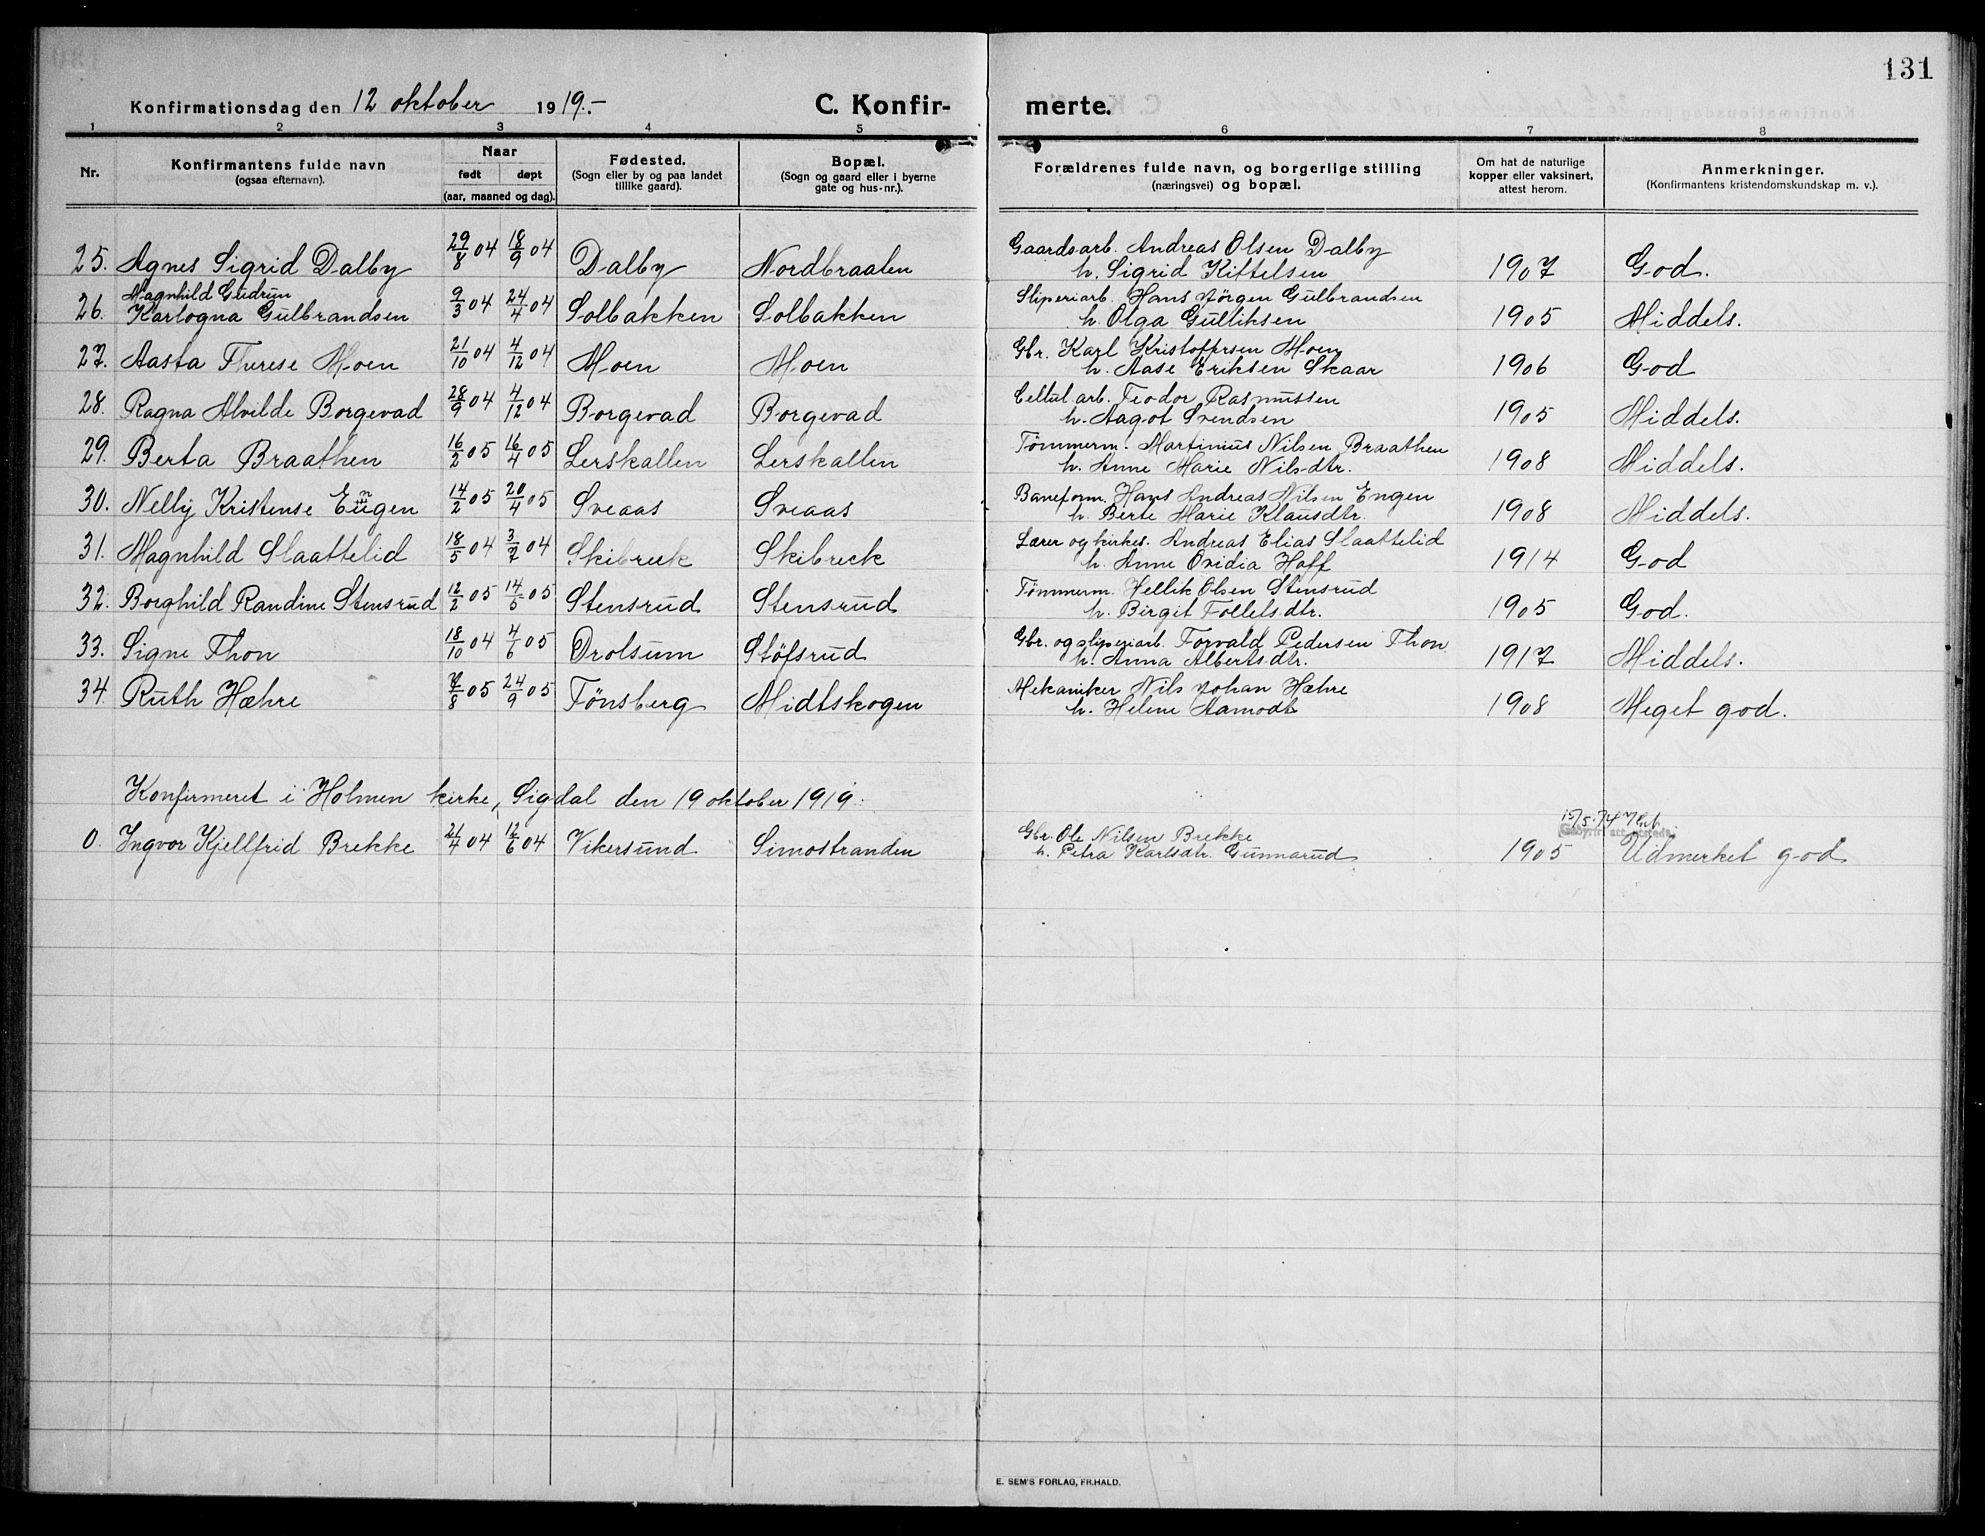 131
Konfirmationsdag den 12 oktober 1919.- C. Konfirmerte.
1 2 3 4 5 6 7 8
Nr. Konfirmantens fulde navn (ogsaa efternavn). Naar født døpt (aar, maaned og dag). Fødested. (Sogn eller by og paa landet tillike gaard). Bopæl. (Sogn og gaard eller i byerne gate og hus-nr.). Forældrenes fulde navn, og borgerlige stilling (næringsvei) og bopæl. Om hat de naturlige kopper eller vaksinert, attest herom. Anmerkninger. (Konfirmantens kristendomskundskap m. v.).
25. Agnes Sigrid Dalby 29/8 04 18/9 04 Dalby Nordbraaten Gaardsarb. Andreas Olsen Dalby h. Sigrid Kittelsen 1907 God.
26. Magnhild Gudrun Karlogna Gulbrandsen 9/3 04 24/4 04 Solbakken Solbakken Sliperiarb. Hans Jörgen Gulbrandsen h. Olga Gulliksen 1905 Middels.
27. Aasta Therese Moen 21/10 04 4/12 04 Moen Moen Gbr. Karl Kristoffersen Moen h. Aase Eriksen Skaar 1906 God
28. Ragna Alvilde Borgevad 28/9 04 4/12 04 Borgevad Borgevad Cellul arb. Teodor Rasmussen h. Aagot Svendsen 1905 Middels.
29. Berta Braathen 16/2 05 16/4 05 Lerskallen Lerskallen Tömmerm. Martinius Nilsen Braathen h. Anne Marie Nilsdtr. 1908 Middels.
30. Nelly Kristense Engen 14/2 05 20/4 05 Sveaas Sveaas Baneform. Hans Andreas Nilsen Engen h. Berte Marie Klausdtr. 1908 Middels.
31. Magnhild Slaattelid 18/5 04 3/7 04 Skibrek Skibrek Lærer og kirkes. Andreas Elias Slaattelid h. Anne Ovidia Hoff 1914 God
32. Borghild Randine Stensrud 12/2 05 14/5 05 Stensrud Stensrud Tömmerm. Hellik Olsen Stensrud h. Birgit Folletsdtr. 1905 God.
33. Signe Thon 18/10 04 4/6 05 Drolsum Stöfsrud Gbr. og sliperiarb. Torvald Pedersen Thon h. Anna Albertsdtr. 1917 Middels.
34. Ruth Hæhre /8 05 24/9 05 Tönsberg Midtskogen Mekaniker Nils Johan Hæhre h. Helene Aamodt 1908 Meget god.
Konfirmeret i Holmen kirke, Sigdal den 19 oktober 1919.
0. Ingvor Kjellfrid Brekke 21/4 04 12/6 04 Vikersund Simostranden Gbr. Ole Nilsen Brekke h. Petra Karlsdtr. Gunnarud 1905 Udmerket god
15/5.74
Gebyrfri att. utstedt
E. SEM'S FORLAG, FR.HALD.